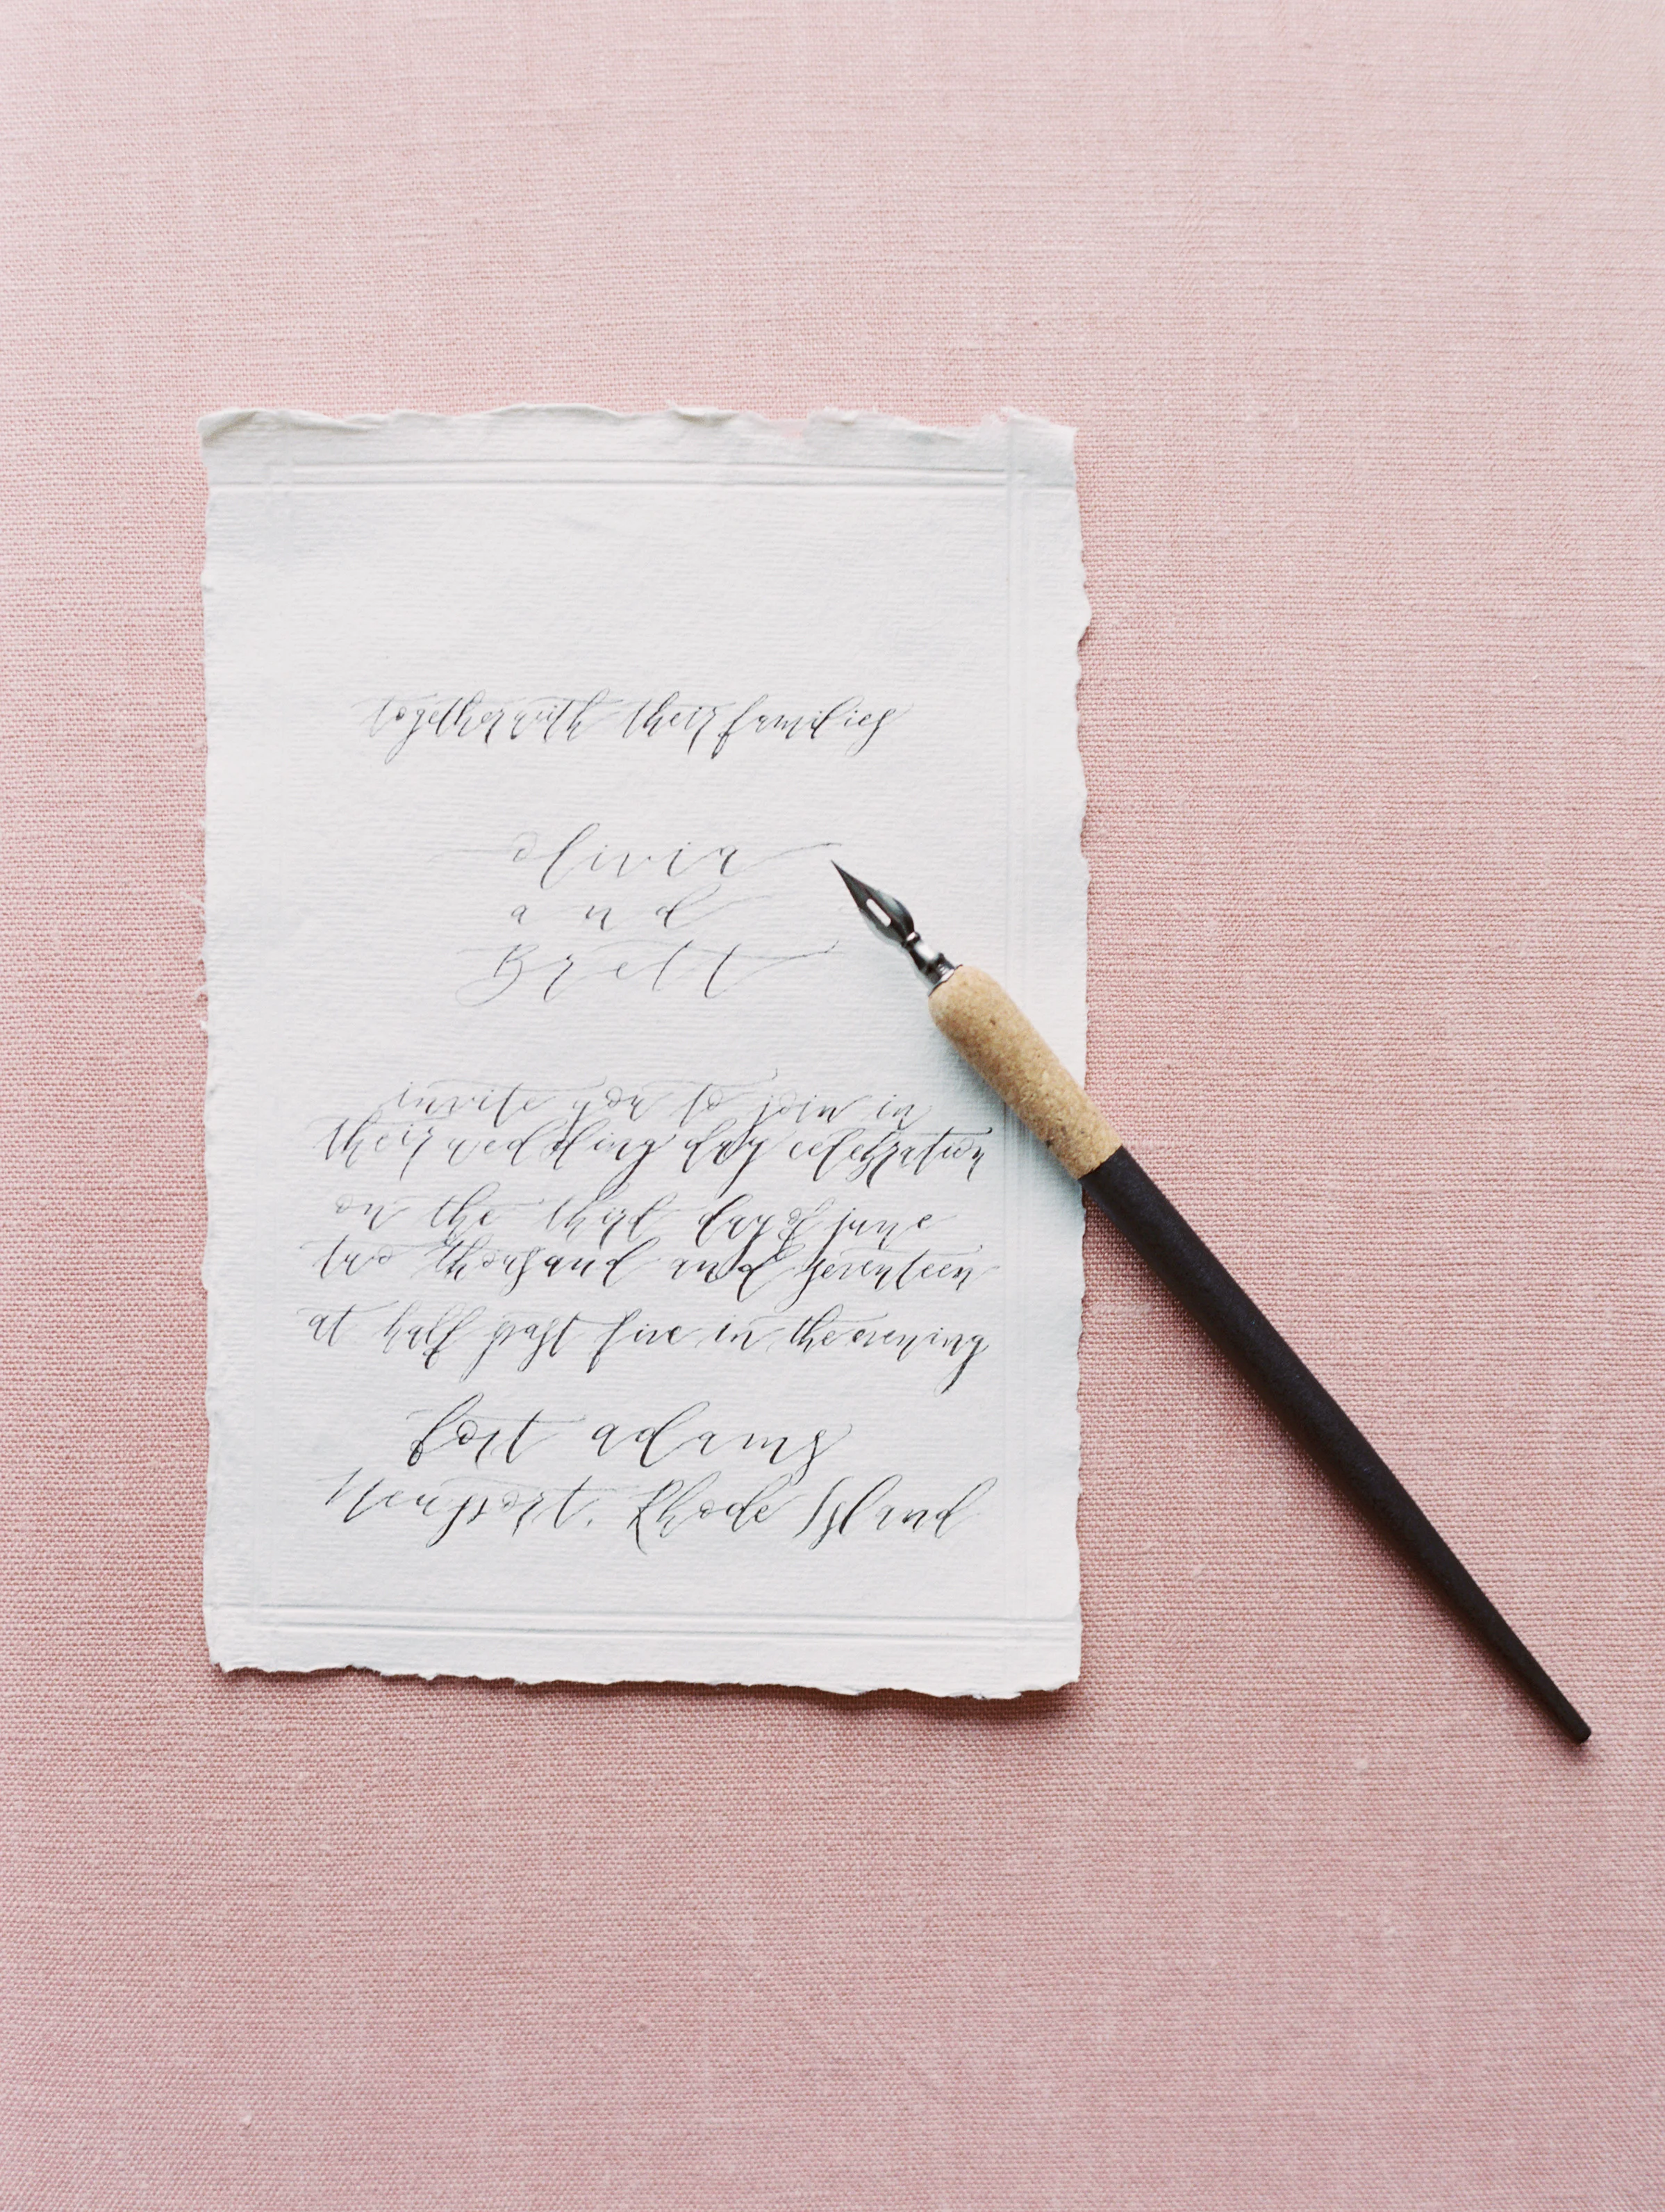 together with their families
Olivia
and
Brett
invite you to join in
their wedding day celebration
on the third day of june
two thousand and seventeen
at half past five in the evening
fort adams
Newport, Rhode Island